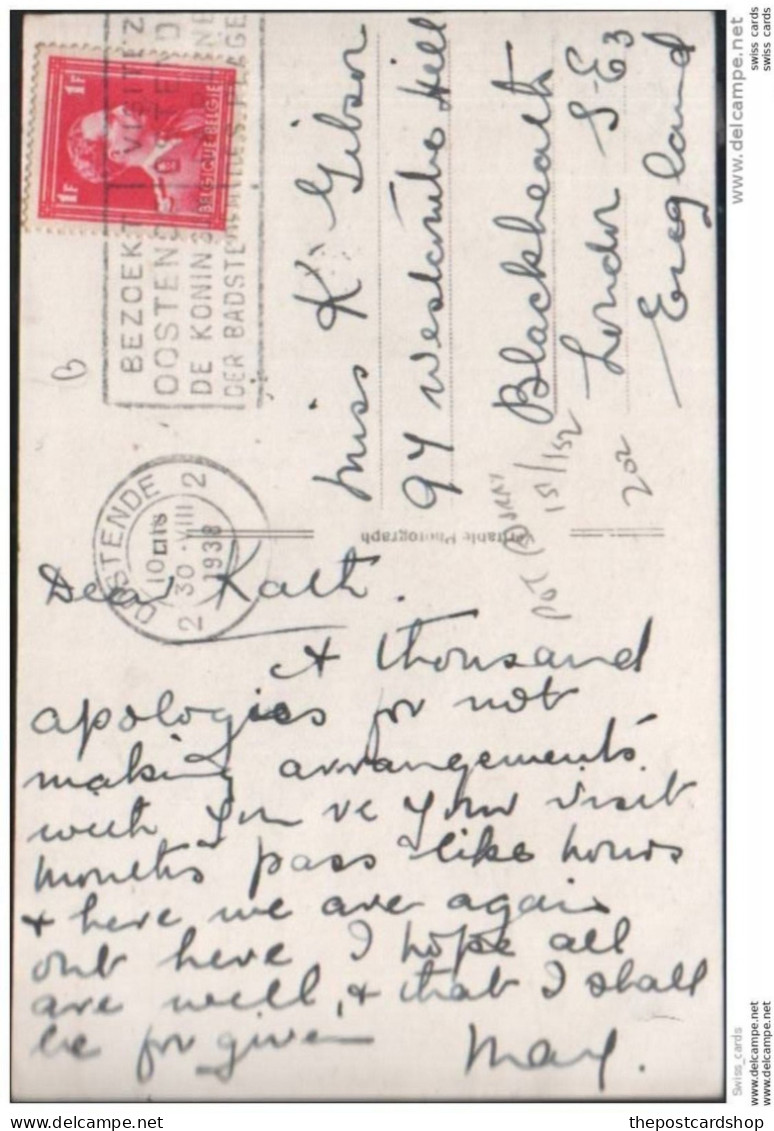 1F 1F
BELGIQUE-BELGIE
VISITEZ
BEZOEKT
OOSTENDE OSTENDE
DE KONINGIN REINE
DER BADSTEDEN DES PLAGES
B
OOSTENDE
2 2
10
30 · VIII
1938
Miss K. Gibson
97 Westcombe Hill
Blackheath
London S.E3
England
Veritable Photograph
151/152
202
Dear Kath.
A thousand
apologies for not
making arrangements
with you re your visit
months pass like hours
+ here we are again
out here I hope all
are well, + that I shall
be forgiven
May.
www.delcampe.net
swiss cards
swiss cards
Swiss_cards
www.delcampe.net
www.delcampe.net
www.delcampe.net
thepostcardshop